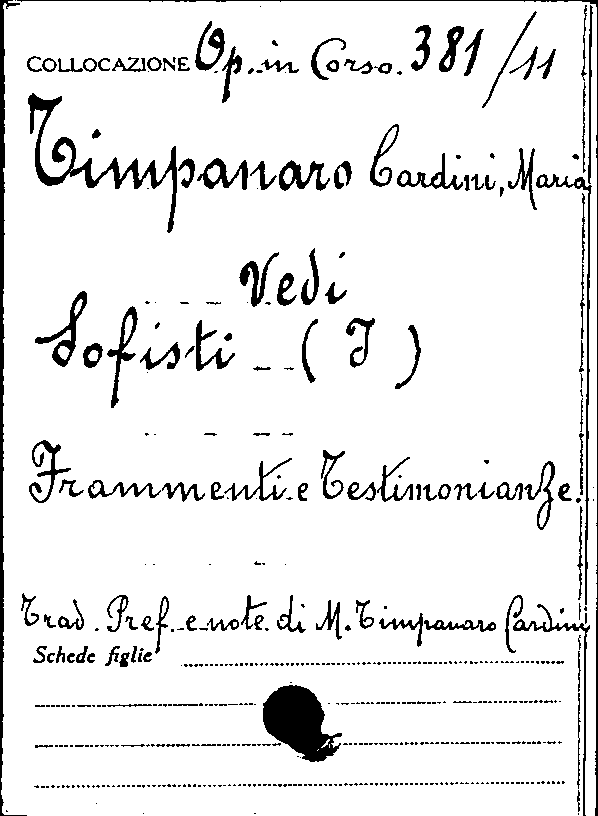 COLLOCAZIONE Op. in Corso. 381/11
Timpanaro Cardini, Maria
Vedi
Sofisti - (I)
Frammenti e Testimonianze.
Trad. Pref. e note di M. Timpanaro Cardini
Schede figlie